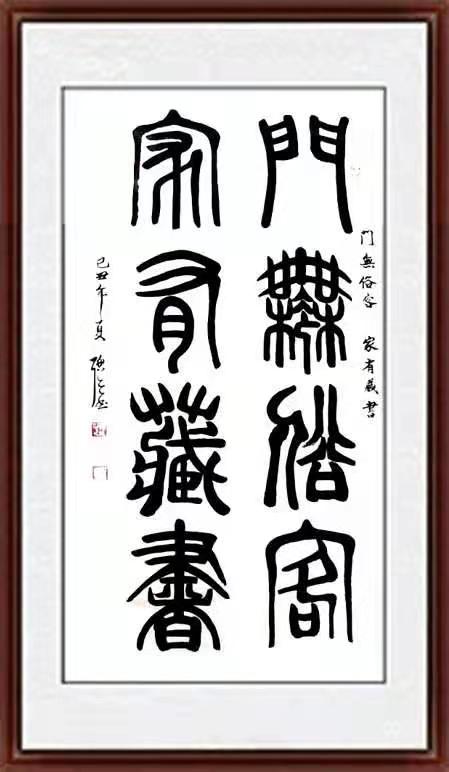 门無俗客 家有藏書
門無俗客
家有藏書
己丑年夏